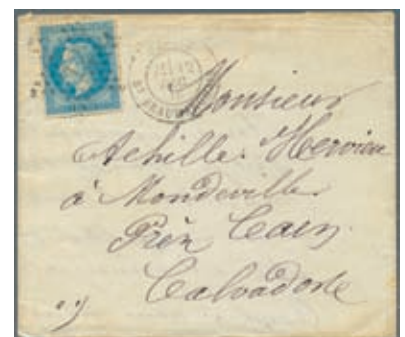 Monsieur
Achille Hervieu
à Mondeville
Près Caen
Calvados